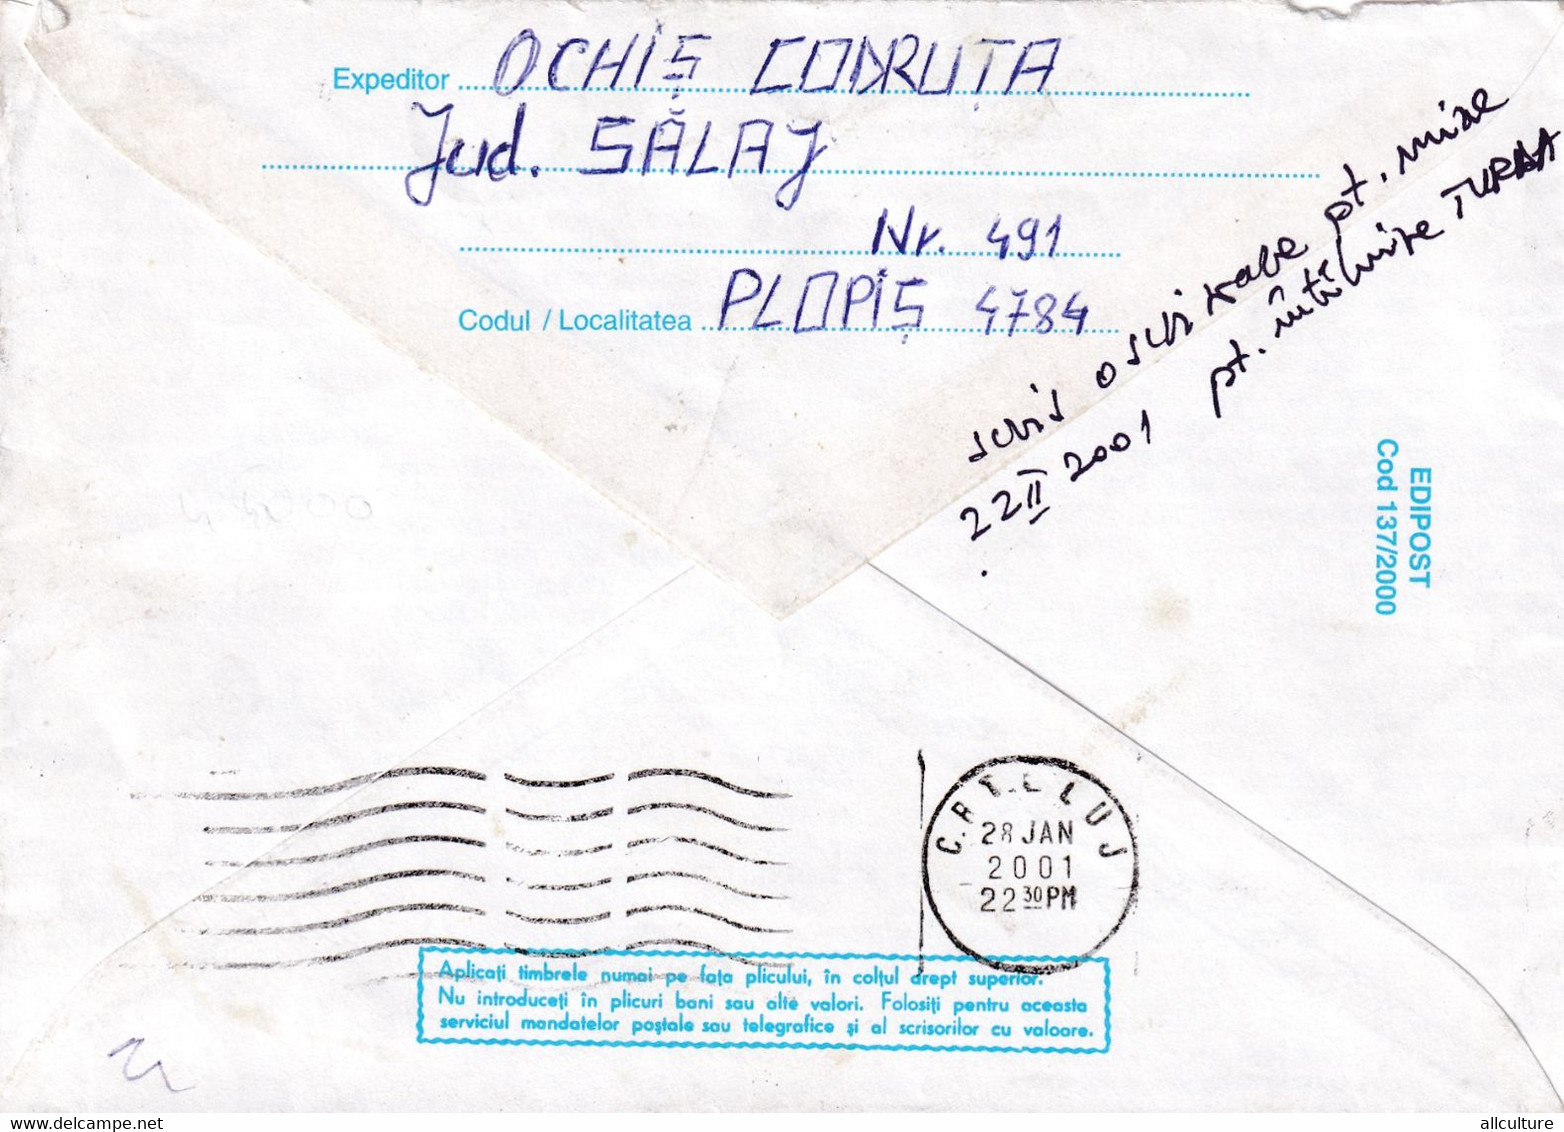 Expeditor OCHIȘ CODRUȚA
Jud. SĂLAJ
Nr. 491
Codul / Localitatea PLOPIȘ 4784
scris o scrisoare pt. mine
22 II 2001 pt. întîlnire TURDA
EDIPOST
Cod 137/2000
C.R.T. CLUJ
28 JAN
2001
22 30 PM
Aplicați timbrele numai pe fața plicului, în colțul drept superior.
Nu introduceți în plicuri bani sau alte valori. Folosiți pentru aceasta
serviciul mandatelor poștale sau telegrafice și al scrisorilor cu valoare.
allculture